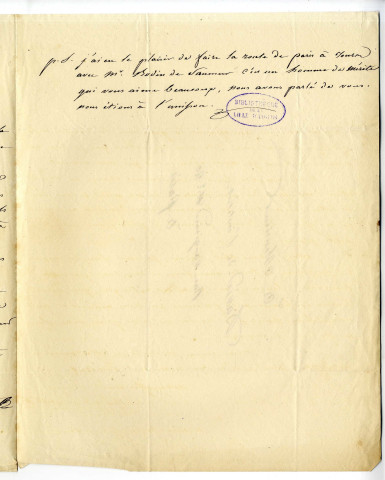 p. S. j'ai eu le plaisir de faire la route de paris à Tours
avec Mr. Bodin de Saumur c'est un homme de mérite
qui vous aime beaucoup, nous avons parlé de vous.
nous étions à l'unisson.
BIBLIOTHEQUE
DE LA
VILLE D'ANGERS